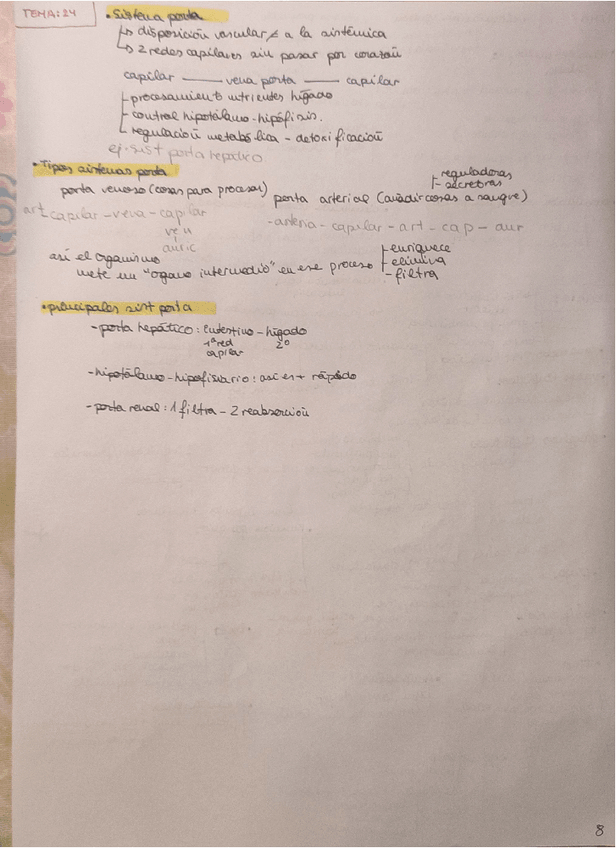 TEMA: 24
• Sistema porta
↳ disposición vascular ≠ a la sistémica
↳ 2 redes capilares sin pasar por corazón
capilar —— vena porta —— capilar
- procesamiento nutrientes hígado
- control hipotálamo-hipófisis.
- regulación metabólica - detoxificación
ej. sist porta hepático
• Tipos sistemas porta
porta venoso (cosas para procesar)
art capilar - vena - capilar
ven
auríc
porta arterial (añadir cosas a sangre)
- reguladoras
- secretoras
- arteria - capilar - art - cap - aur
así el organismo
mete un "órgano intermedio" en ese proceso
- enriquece
- elimina
- filtra
• principales sist porta
- porta hepático: intestino - hígado
1ª red capilar
2º
- hipotálamo-hipofisiario: así es + rápido
- porta renal: 1 filtra - 2 reabsorción
8